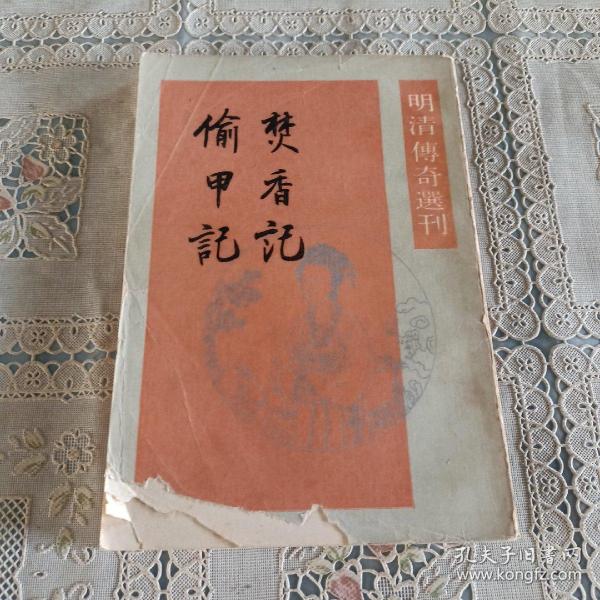 明清傳奇選刊
焚香记
偷甲記
孔夫子旧书网
www.kongfz.com